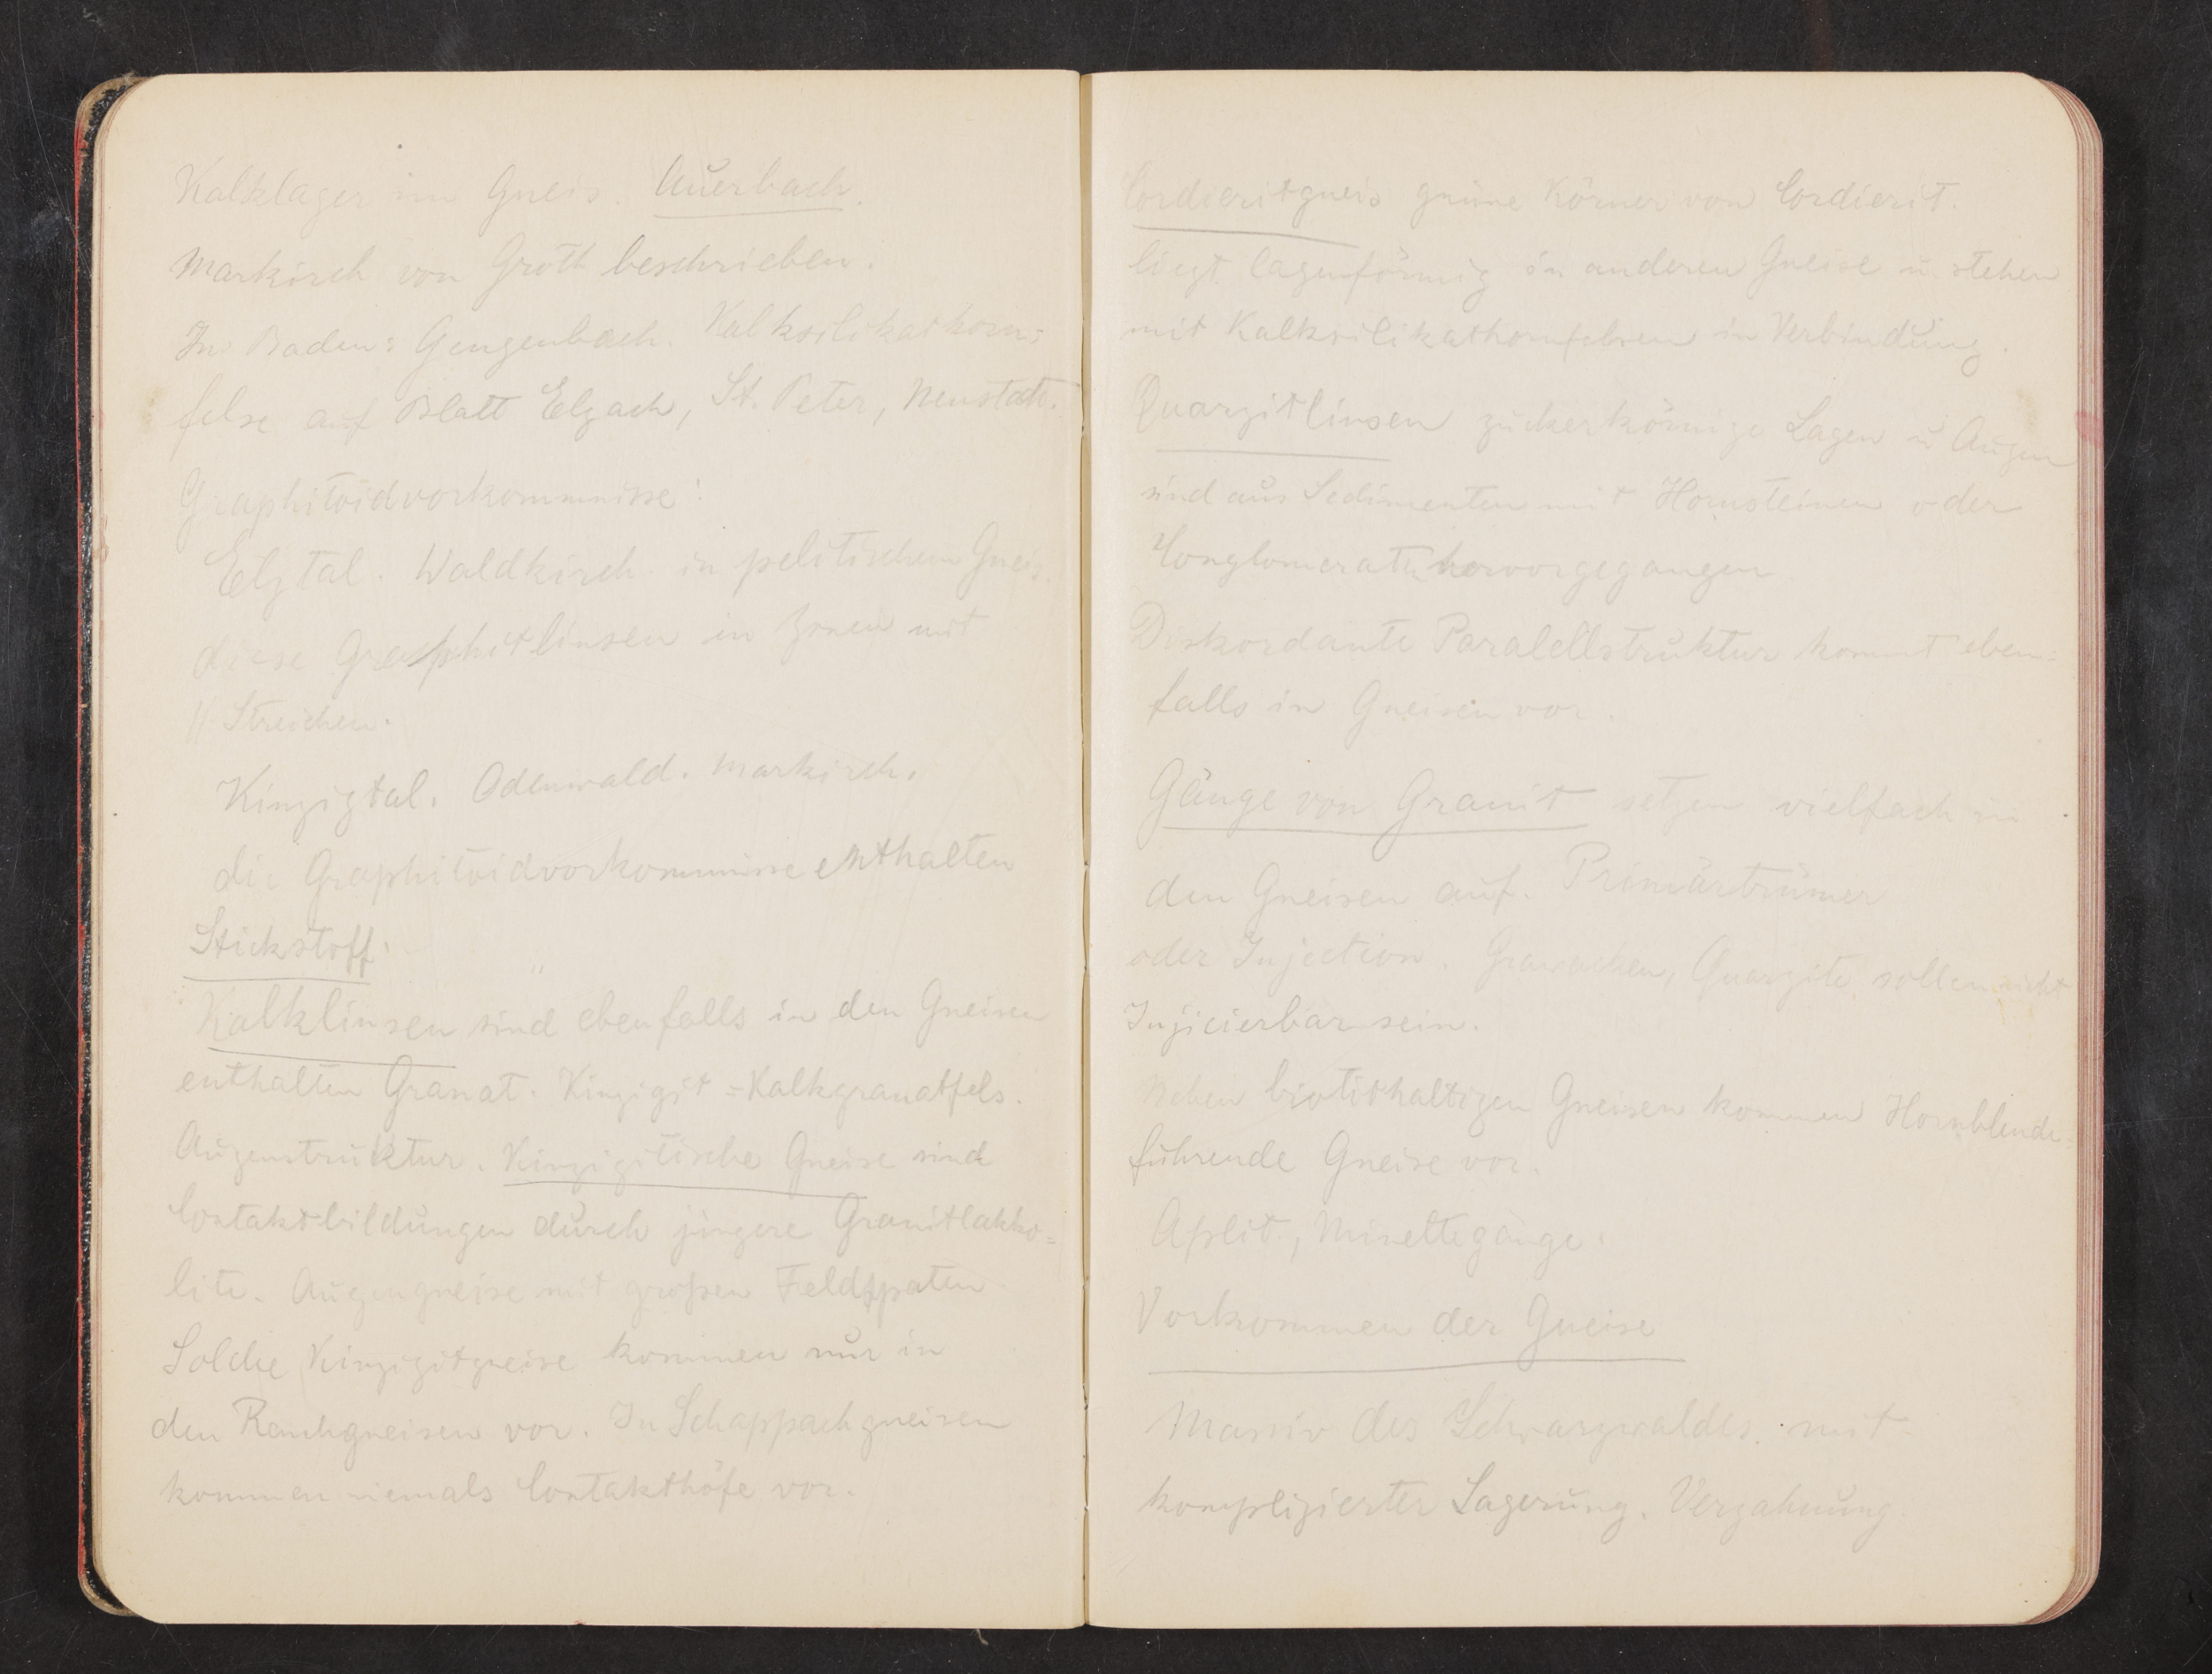 Kalklager im Gneis. Auerbach.
Markirch von Groth beschrieben.
In Baden: Gengenbach. Kalksilikathorn=
felse auf Blatt Elzach, St. Peter, Neustadt.
Graphitoidvorkommnisse:
Elztal. Waldkirch. in pelitischem Gneis.
diese Graphitlinsen in Zonen mit
// Streichen.
Kinzigtal. Odenwald. Markirch.
die Graphitoidvorkommnisse enthalten
Stickstoff.
Kalklinsen sind ebenfalls in den Gneisen
enthalten Granat. Kinzigit = Kalkgranatfels.
Augenstruktur. Kinzigitische Gneise sind
Contaktbildungen durch jüngere Granitlakko=
lite. Augengneise mit großen Feldspaten
Solche Kinzigitgneise kommen nur in
den Renchgneisen vor. In Schappachgneisen
kommen niemals Contakthöfe vor.
Cordieritgneis grüne Körner von Cordierit.
liegt lagenförmig in anderen Gneise u. stehen
mit Kalksilikathornfelsen in Verbindung.
Quarzitlinsen zuckerkörnige Lagen u Augen
sind aus Sedimenten mit Hornsteinen oder
Conglomeraten hervorgegangen
Diskordante Paralellstruktur kommt eben=
falls in Gneisen vor.
Gänge von Granit setzen vielfach in
den Gneisen auf. Primärtrümer
oder Injection. Grauwacken, Quarzite sollen nicht
Injicierbar sein.
Neben biotithaltigen Gneisen kommen Hornblende=
führende Gneise vor.
Aplit, Minettegänge.
Vorkommen der Gneise
Massiv des Schwarzwaldes. mit
komplizierter Lagerung. Verzahnung.